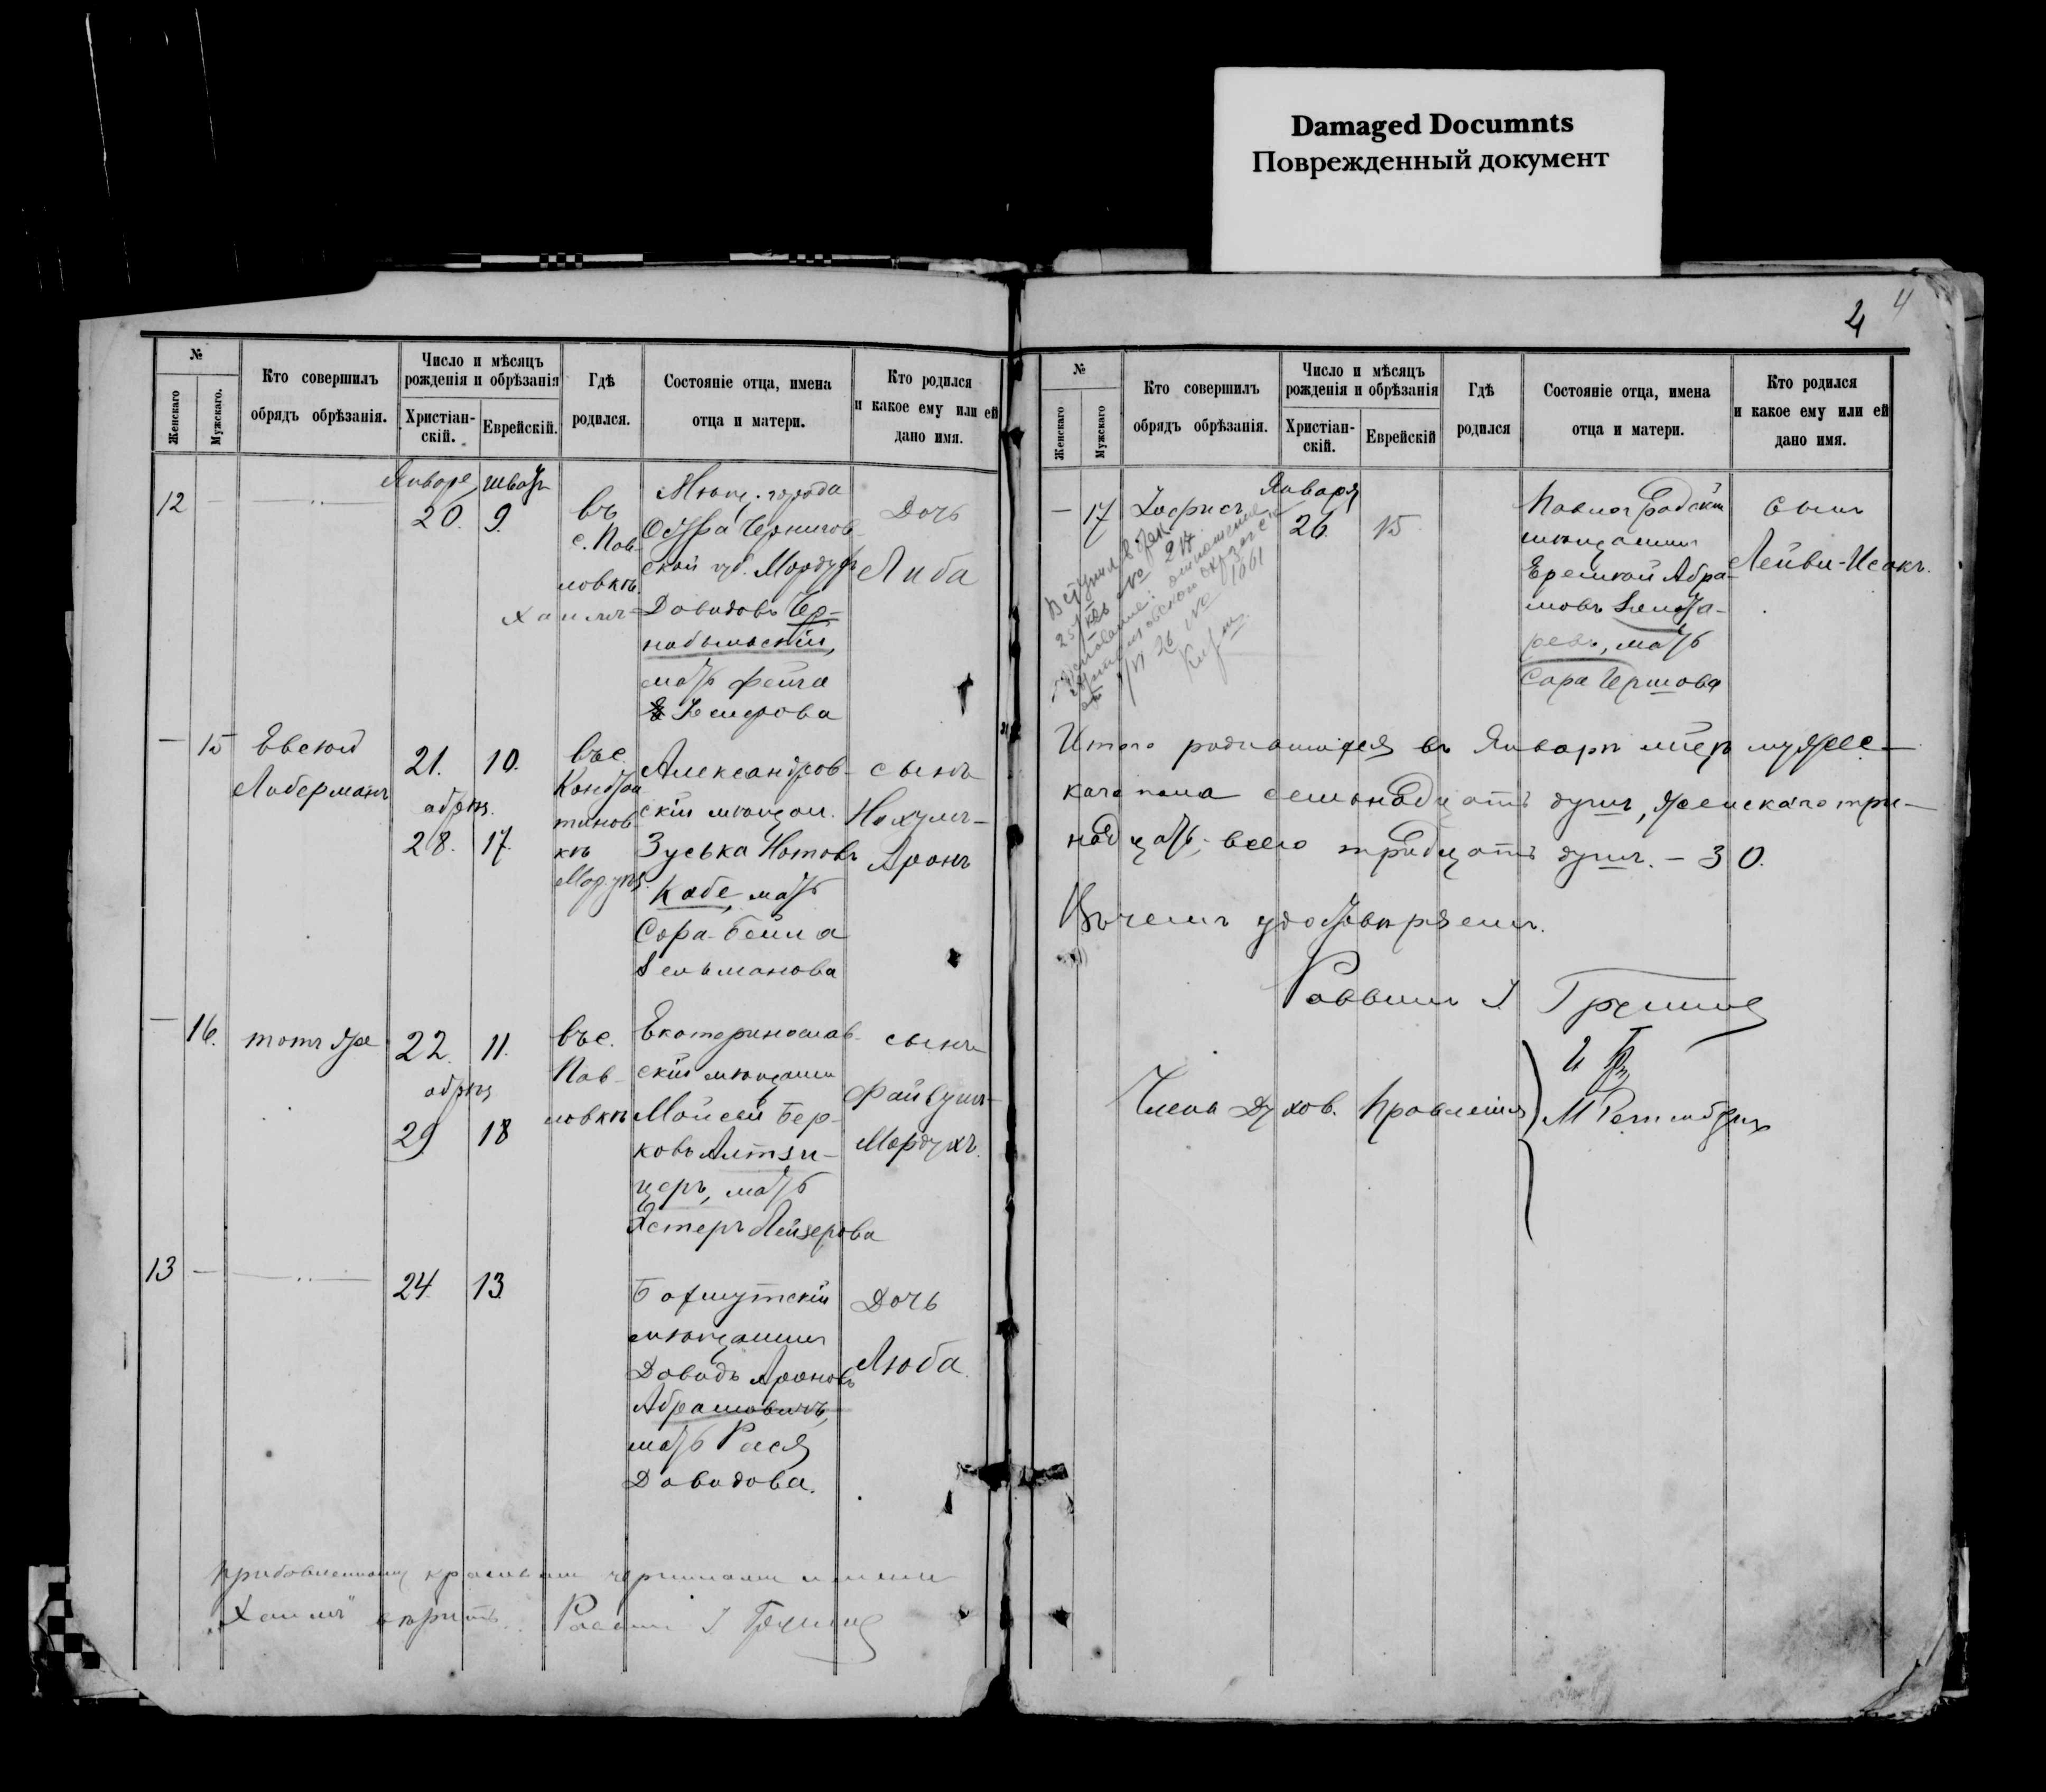 Damaged Documnts
Поврежденный документ
4
4
№
Женскаго
Мужскаго.
Кто совершилъ
обрядъ обрѣзанія.
Число и мѣсяцъ
рожденія и обрѣзанія
Христіан-
скій.
Еврейскій.
Гдѣ
родился.
Состояніе отца, имена
отца и матери.
Кто родился
и какое ему или ей
дано имя.
Январе Шватъ
12 — 20. 9.
въ
с. Пав-
ловкѣ
Мѣщ. города
Остра Чернигов-
ской губ. Мордухъ
Хаимъ- Давидовъ Чер-
нобыльскій,
мать Фейга
Лейзерова
Дочь
Либа
— 15 Евсей
Либерманъ
21. 10.
обрѣз.
28. 17.
въ с.
Констан
тинов-
кѣ
Мар. у.
Александров-
скій мѣщан.
Зуська Нотовъ
Кабе, мать
Сора-Бейла
Зельманова
сынъ
Нохумъ-
Аронъ
— 16. тотъ же
22. 11.
обрѣз.
29 18
въ с.
Пав-
ловкѣ
Екатеринослав-
скій мѣщанин
Мойсей Бер-
ковъ Альтзи-
церъ, мать
Эстеръ Лейзерова
сынъ
Файвушъ-
Мордухъ.
13 — 24 13
Бахмутскій
мѣщанинъ
Давидъ Ароновъ
Абрамовичъ,
мать Рася
Давидова.
Дочь
Люба.
Прибавленному красными чернилами имени
„Хаимъ" вѣрить. Раввинъ
№
Женскаго
Мужскаго
Кто совершилъ
обрядъ обрѣзанія.
Число и мѣсяцъ
рожденія и обрѣзанія
Христіан-
скій.
Еврейскій
Гдѣ
родился
Состояніе отца, имена
отца и матери.
Кто родился
и какое ему или ей
дано имя.
Января
— 17 26. 15
Павлоградскій
мѣщанинъ
Абра-
мовъ
мать
Сора Гершова
сынъ
Лейви-Исакъ.
№ 217
№ 1061
Итого родившихся въ Январѣ мѣс. мужес-
каго пола семьнадцать душъ, женскаго три-
надцать, всего тридцать душъ. — 30.
Въ чемъ удостовѣряемъ.
Раввинъ
Члены Духов. Правленія